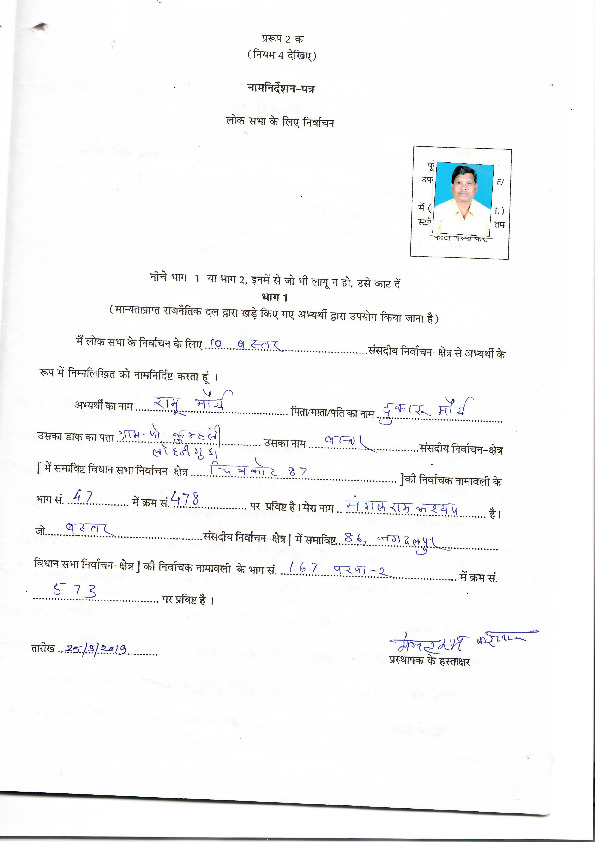 प्ररूप 2 क
(नियम 4 देखिए)
नामनिर्देशन-पत्र
लोक सभा के लिए निर्वाचन
नीचे भाग 1 या भाग 2, इनमें से जो भी लागू न हो, उसे काट दें
भाग 1
(मान्यताप्राप्त राजनैतिक दल द्वारा खड़े किए गए अभ्यर्थी द्वारा उपयोग किया जाना है)
मैं लोक सभा के निर्वाचन के लिए 10 बस्तर संसदीय निर्वाचन-क्षेत्र से अभ्यर्थी के
रूप में निम्नलिखित को नामनिर्दिष्ट करता हूं ।
अभ्यर्थी का नाम रामू मौर्य पिता/माता/पति का नाम दुकारू मौर्य
उसका डाक का पता ग्राम-पो उसका नाम बस्तर संसदीय निर्वाचन-क्षेत्र
लोहन्डीगुड़ा
[ में समाविष्ट विधान सभा निर्वाचन-क्षेत्र चित्रकोट 87 ]की निर्वाचक नामावली के
भाग सं. 47 में क्रम सं. 478 पर प्रविष्ट है । मेरा नाम कश्यप है ।
जो बस्तर संसदीय निर्वाचन-क्षेत्र [ में समाविष्ट 86, जगदलपुर
विधान सभा निर्वाचन-क्षेत्र ] की निर्वाचक नामावली के भाग सं. 167 में क्रम सं.
573 पर प्रविष्ट है ।
तारीख 25/3/2019
प्रस्थापक के हस्ताक्षर